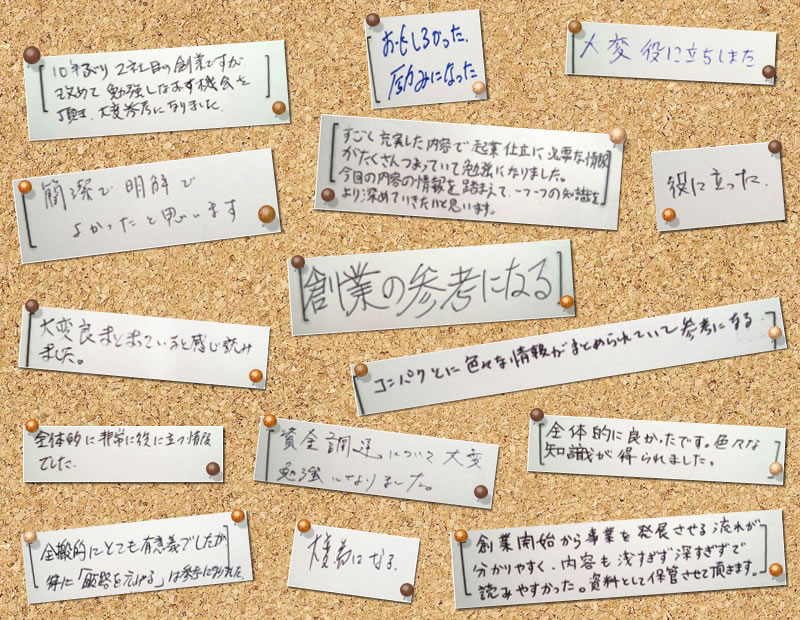 10年ぶり2社目の創業ですが、
改めて勉強しなおす機会を
頂き、大変参考になりました。
おもしろかった。
励みになった
大変役に立ちました
簡潔で明解で
よかったと思います
すごく充実した内容で起業仕立に必要な情報
がたくさんつまっていて勉強になりました。
今回の内容の情報を踏まえて、一つ一つの知識を
より深めていきたいと思います。
役に立った。
創業の参考になる
大変良まとまっていると感じ読み
ました。
コンパクトに色々な情報がまとめられていて参考になる
全体的に非常に役に立つ情報
でした。
資金調達について大変
勉強になりました。
全体的に良かったです。色々な
知識が得られました。
全般的にとても有意義でしたが
特に「販路を広げる」は参考になりました。
になる。
創業開始から事業を発展させる流れが
分かりやすく、内容も浅すぎず深すぎずで
読みやすかった。資料として保管させて頂きます。